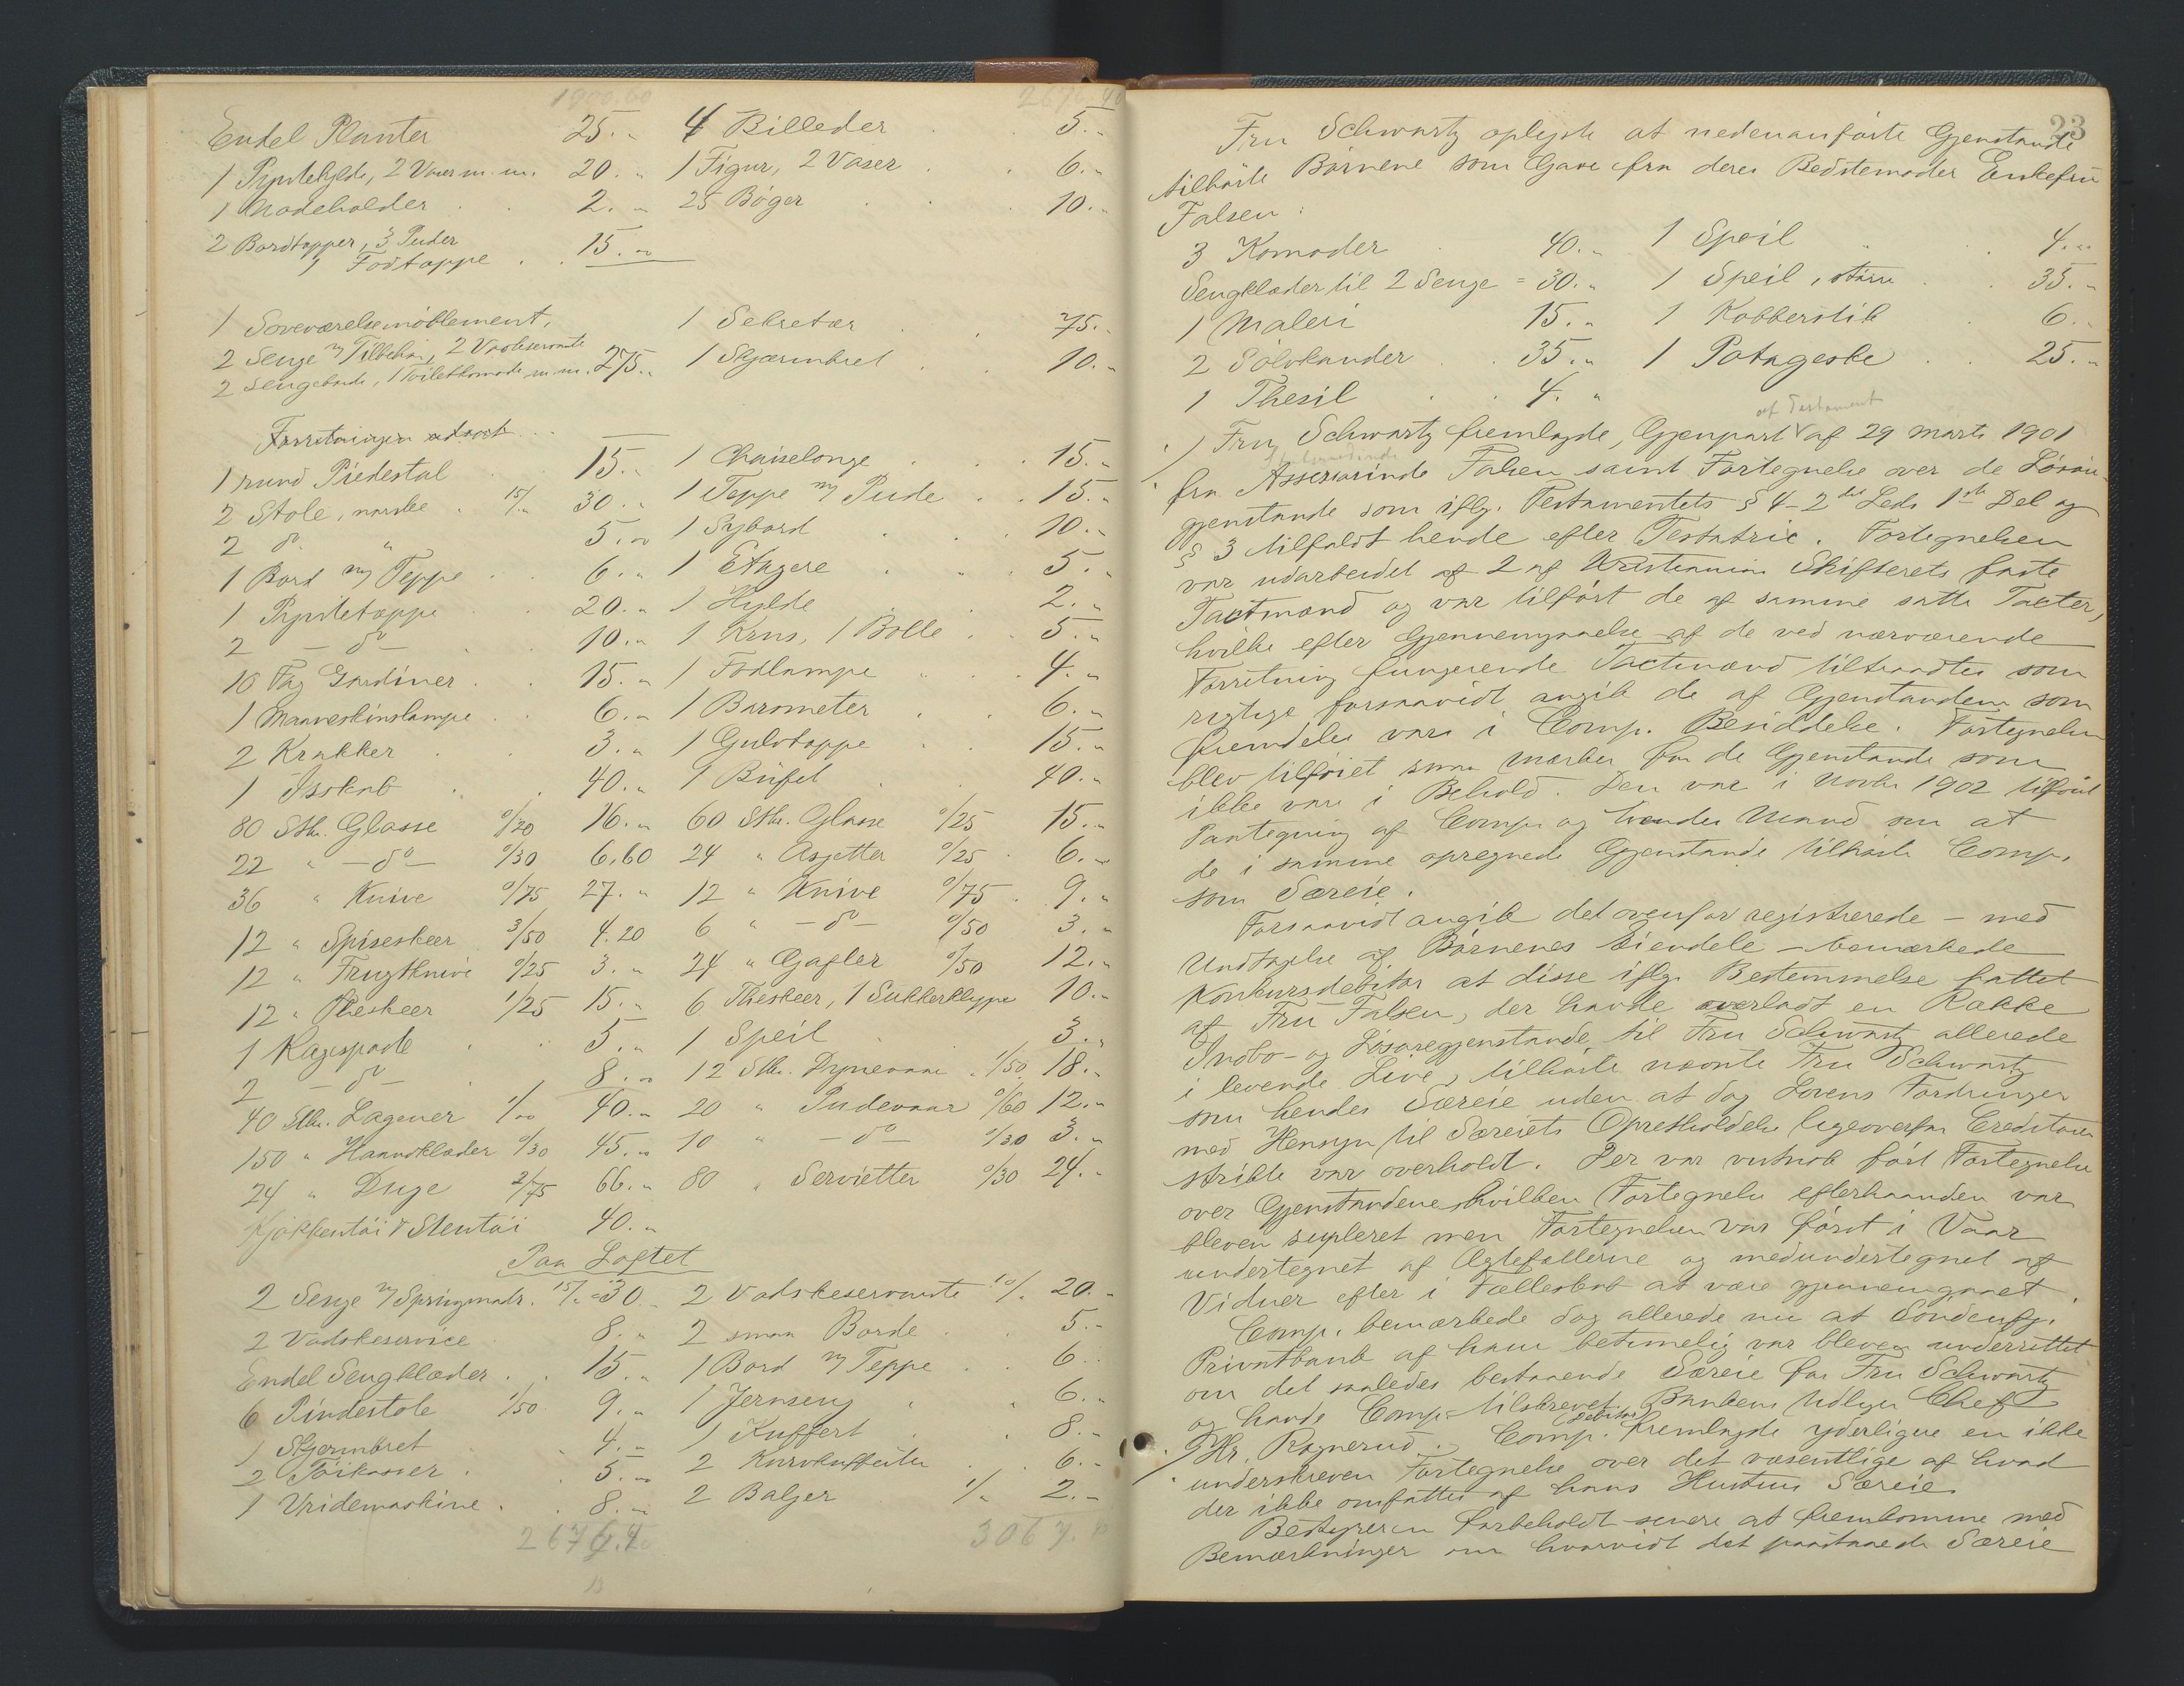 1900.60
2676.40
Endel Planter 25.„
1 Pyntehylde, 2 Vaser m.m. 20.„
1 Nodeholder 2.„
2 Bordtæpper, 3 Puder
1 Fodtæppe 15.„
4 Billeder 5.„
1 Figur, 2 Vaser 6.„
25 Bøger 10.„
1 Soveværelsemöblement,
2 Senge m/ Tilbehör, 2 Vaskeservante
2 Sengeborde, 1 Toiletkomode m.m. 275.„
1 Sekretær 75.„
1 Skjærmbret 10.„
Forretningen udsat
1 rund Piedestal 15.„
2 Stole, norske 15/„ 30.„
2 do „ 5.„
1 Bord m/ Teppe 6.„
1 Pyntetæppe 20.„
2 – do – 10.„
10 Fag Gardiner 15.„
1 Maaneskinslampe 6.„
2 Krakker 3.„
1 Isskab 40.„
80 Stk. Glasse 0/20 16.„
22 „ – do – 0/30 6.60
36 „ Knive 0/75 27.„
12 „ Spiseskeer 3/50 4.20
12 „ Frugtknive 0/25 3.„
12 „ Theskeer 1/25 15.„
1 Kagespade 5.„
2 – do – 8.„
40 Stk. Lagener 1/„ 40.„
150 „ Haandklæder 0/30 45.„
24 „ Duge 2/75 66.„
Kjøkkentöi & Stentöi 40.„
1 Chaiselonge 15.„
1 Teppe m/ Pude 15.„
1 Sybord 10.„
1 Etagere 5.„
1 Hylde 2.„
1 Krus, 1 Bolle 5.„
1 Fodlampe 4.„
1 Barometer 6.„
1 Gulvtæppe 15.„
1 Büfet 40.„
60 Stk. Glasse 0/25 15.„
24 „ Asjetter 0/25 6.„
12 „ Knive 0/75 9.„
6 „ – do – 0/50 3.„
24 „ Gafler 0/50 12.„
6 Theskeer, 1 Sukkerklype 10.„
1 Speil 3.„
12 Stk. Dynevaar 1/50 18.„
20 „ Pudevaar 0/60 12.„
10 „ – do – 0/30 3.„
80 „ Servietter 0/30 24.„
Paa Loftet
2 Senge m/ Springmadr. 15/„ = 30.„
2 Vadskeservice 8.„
Endel Sengklæder 15.„
6 Pindestole 1/50 9.„
1 Skjermbret 4.„
2 Töikasser 5.„
1 Vridemaskine 8.„
2 Vadskeservante 10/„ 20.„
2 smaa Borde 5.„
1 Bord m/ Teppe 6.„
1 Jernseng 6.„
1 Kuffert 8.„
2 Kurvkufferter 6.„
2 Baljer 1/„ 2.„
2676.40
3067.
23
Fru Schwartz oplyste at nedenanförte Gjenstande
tilhörte Börnene som Gave fra deres Bedstemoder Enkefru
Falsen:
3 Komoder 40.„
Sengklæder til 2 Senge = 30.„
1 Maleri 15.„
2 Sölvkander 35.„
1 Thesil 4.„
1 Speil 4.„
1 Speil, större 35.„
1 Kobberstik 6.„
1 Potageske 25.„
af Testament
./. Fru Schwartz fremlagde, Gjenpart af 29 Marts 1901
fra Assessorinde Falsen samt Fortegnelse over de Lösöre-
gjenstande som iflg. Testamentets § 4 - 2det Leds 1ste Del og
§ 3 tilfaldt hende efter Testatrix. Fortegnelsen
var udarbeidet af 2 af Kristiania Skifterets faste
Taxtmænd og var tilfört de af samme satte Taxter,
hvilke efter Gjennemgaaelse af de ved nærværende
Forretning fungerende Taxtmænd tiltraadtes som
rigtige forsaavidt angik de af Gjenstandene som
fremdeles vare i Comp. Besiddelse. Fortegnelsen
blev tilföiet smaa Mærker for de Gjenstande som
ikke vare i Behold. Den var i Novbr 1902 tilföiet
Paategning af Comp. og hendes Mand om at
de i samme opregnede Gjenstande tilhörte Comp.
som Særeie.
Forsaavidt angik det ovenfor registrerede – med
Undtagelse af Börnenes Eiendele – bemærkede
Konkursdebitor at disse iflg. Bestemmelse fattet
af Fru Falsen, der havde overladt en Række
Indbo- og Lösöregjenstande til Fru Schwartz allerede
i levende Live, tilhörte nævnte Fru Schwartz
som hendes Særeie uden at dog Lovens Fordringer
med Hensyn til Særeiets Opretholdelse ligeoverfor Creditorer
strikte var overholdt. Der var vistnok fört Fortegnelse
over Gjenstandene hvilken Fortegnelse efterhaanden var
bleven supleret men Fortegnelsen var först i Vaar
undertegnet af Ægtefællerne og medundertegnet af
Vidner efter i Fællesskab at være gjennemgaaet.
Comp. bemærkede dog allerede nu at Söndenfj.
Privatbank af ham betimelig var bleven underrettet
om det saaledes bestaaende Særeie for Fru Schwartz
og havde Comp. tilskrevet Bankens Udlyer Chef
Hr. Ragnerud. Comp. (Debitor) fremlagde yderligere en ikke
./. underskreven Fortegnelse over det væsentlige af hvad
der ikke omfattes af hans Hustrus Særeie.
Bestyreren forbeholdt senere at fremkomme med
Bemærkninger om hvorvidt det paastaaede Særeie